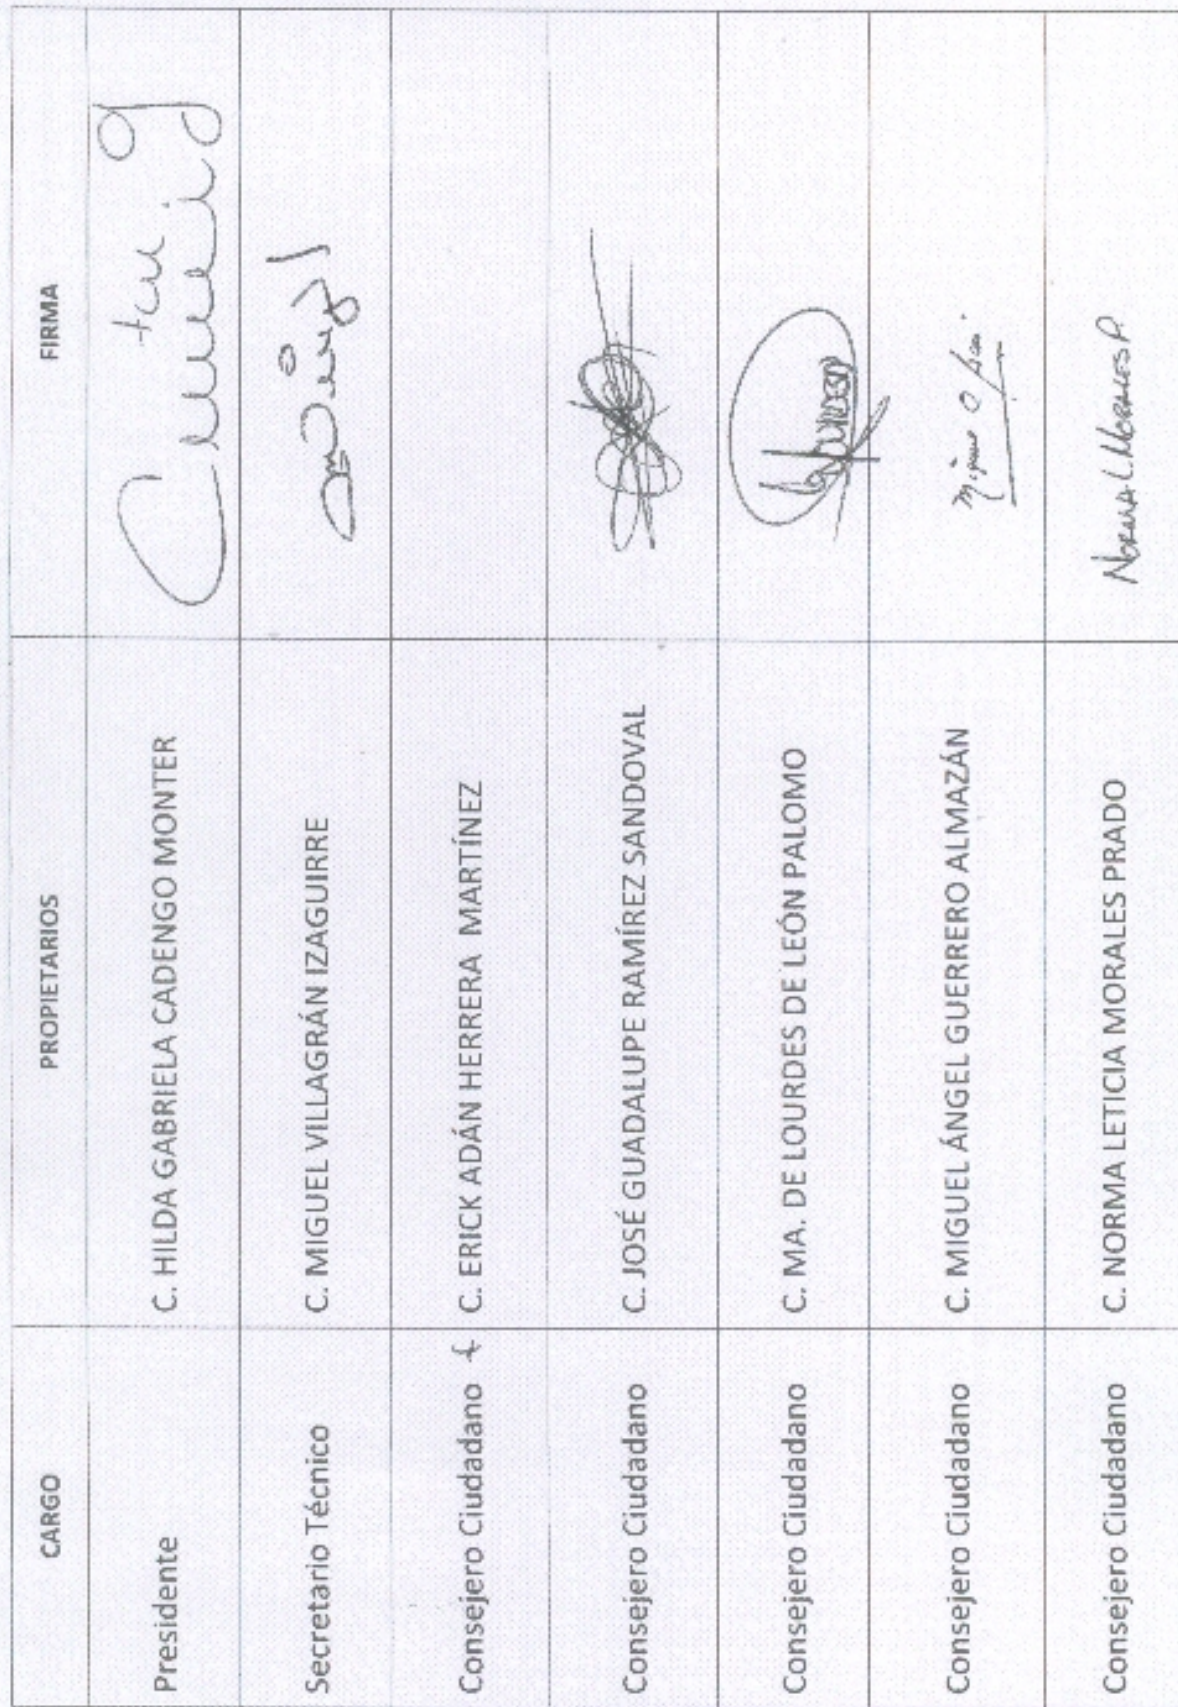 CARGO PROPIETARIOS FIRMA
Presidente C. HILDA GABRIELA CADENGO MONTER
Secretario Técnico C. MIGUEL VILLAGRÁN IZAGUIRRE
Consejero Ciudadano C. ERICK ADÁN HERRERA MARTÍNEZ
Consejero Ciudadano C. JOSÉ GUADALUPE RAMÍREZ SANDOVAL
Consejero Ciudadano C. MA. DE LOURDES DE LEÓN PALOMO
Consejero Ciudadano C. MIGUEL ÁNGEL GUERRERO ALMAZÁN
Consejero Ciudadano C. NORMA LETICIA MORALES PRADO NORMA L. MORALES P.